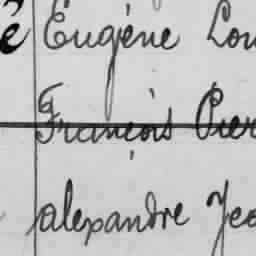 Eugène Lou
François Pier
alexandre Jea